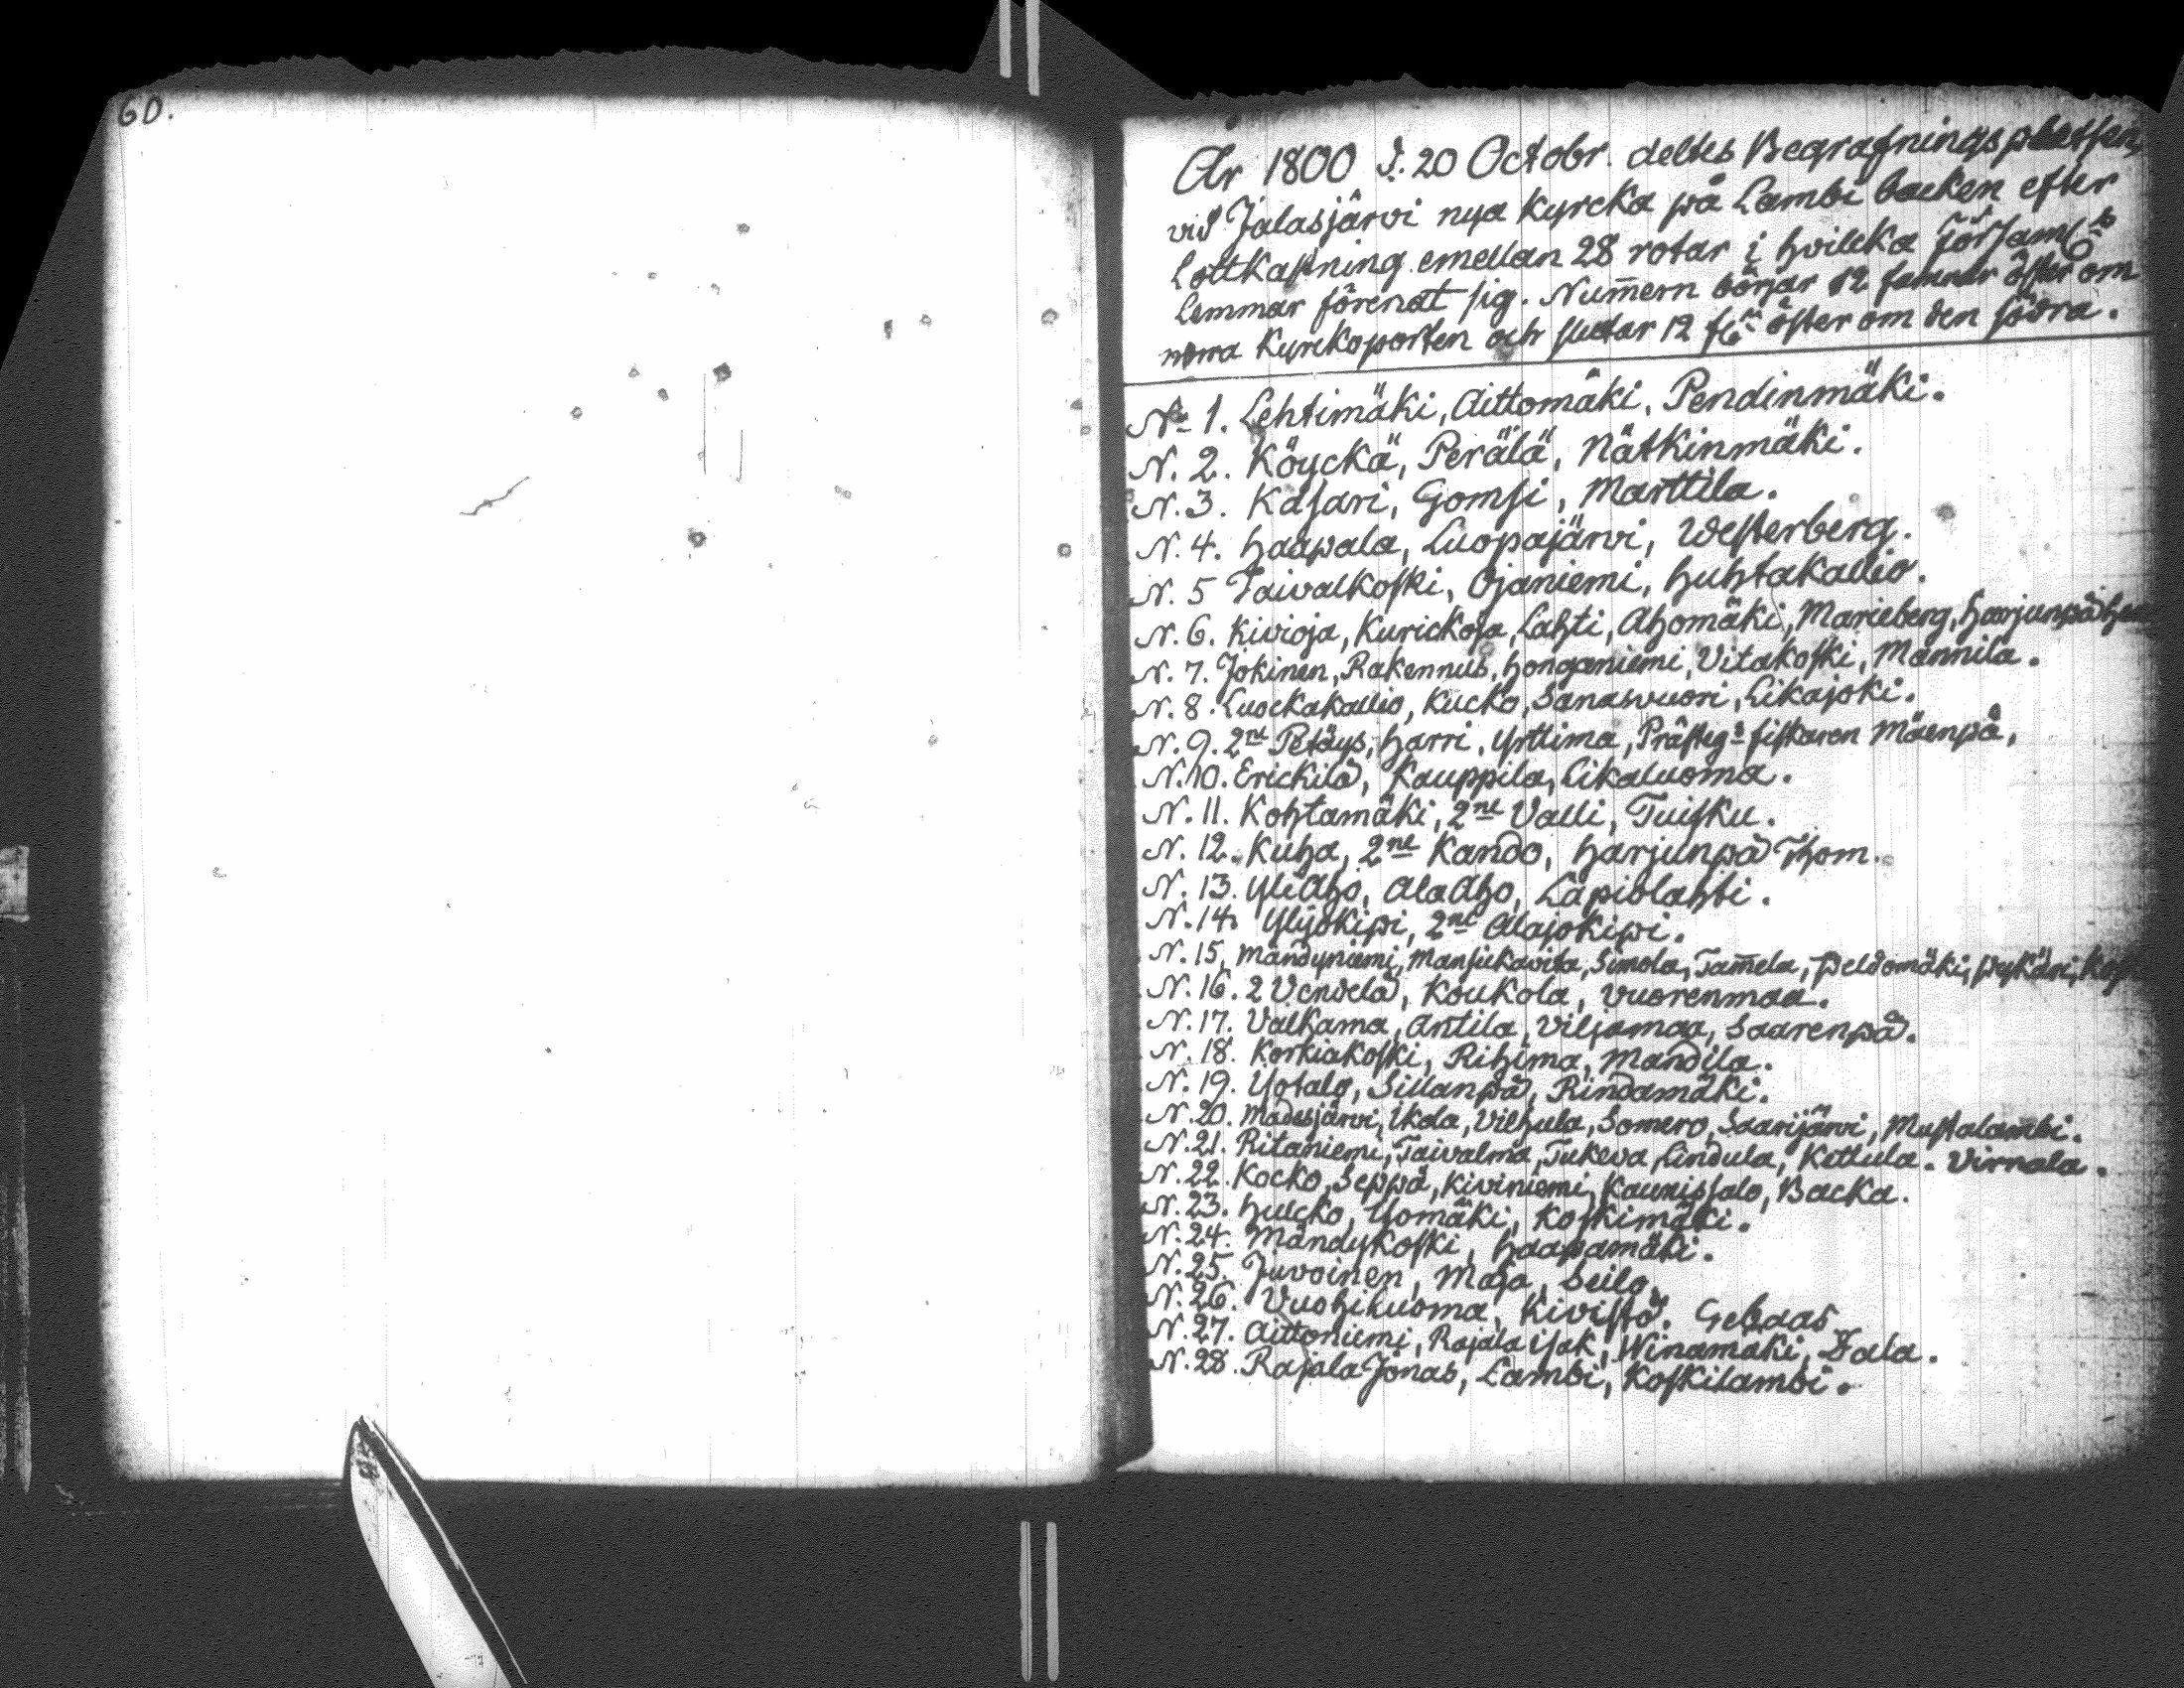 60.
År 1800 d. 20 Octobr. deltes Begrafningsplatsen
vid Jalasjärvi nya kyrcka på Lambi backen efter
Lottkastning emellan 28 rotar i hvilcka församl:s
Lemmar förenat sig. Num̄ern börjar 12 famnar öster om
norra Kyrckoporten och slutar 12 öster om den södra.
No 1. Lehtimäki, Aittomäki, Pendinmäki.
N. 2. Köyckä, Perälä, Nätkinmäki.
N. 3. Kasari, Gomsi, Marttila.
N. 4. Haapala, Luopajärvi, Westerberg.
N. 5 Taivalkoski, Ojaniemi, Huhtakallio.
N. 6. Kivioja, Kurickoja, Lahti, Ahomäki, Marieberg, Harjunpä
N. 7. Jokinen, Rakennus, Honganiemi, Vitakoski, Mannila.
N. 8. Luockakallio, Kucko, Sanasvuori, Likajoki.
N. 9. 2ne Petäys, Harri, Yrttima, Prästeg:s fiskaren Mäenpä,
N. 10. Erickilä, Kauppila, Likaluoma.
N. 11. Kohtamäki, 2ne Valli, Tuisku.
N. 12. Kuha, 2ne Kando, Harjunpä Thom.
N. 13. YliAho, AlaAho, Lapiolahti.
N. 14. Ylijokipi, 2ne Alajokipi.
N. 15. Mandyniemi, Mansickavita, Simola, Tam̄ela, Peldomäki,
N. 16. 2 Vendelä, Koukola, Vuorenmaa.
N. 17. Valkama, Antila, Viljamaa, Saarenpä.
N. 18. Korkiakoski, Rihima, Mandila.
N. 19. Yotalo, Sillanpä, Rindamäki.
N. 20. Madesjärvi, Ikola, Vilhula, Somero, Saarijärvi, Mustalambi.
N. 21. Ritaniemi, Taivalma, Tukeva, Lindula, Kettula. Virnala.
N. 22. Kocko, Seppä, Kiviniemi, Kaunissalo, Backa.
N. 23. Hulcko, Yomäki, Koskimäki.
N. 24. Mändykoski, Haapamäki.
N. 25. Juvoinen, Maja, Seilo.
N. 26. Vuohiluoma, Kivistö. Gebaas
N. 27. Aittoniemi, Rajala Isak, Winamäki, Tala.
N. 28. Rajala Jonas, Lambi, Koskilambi.